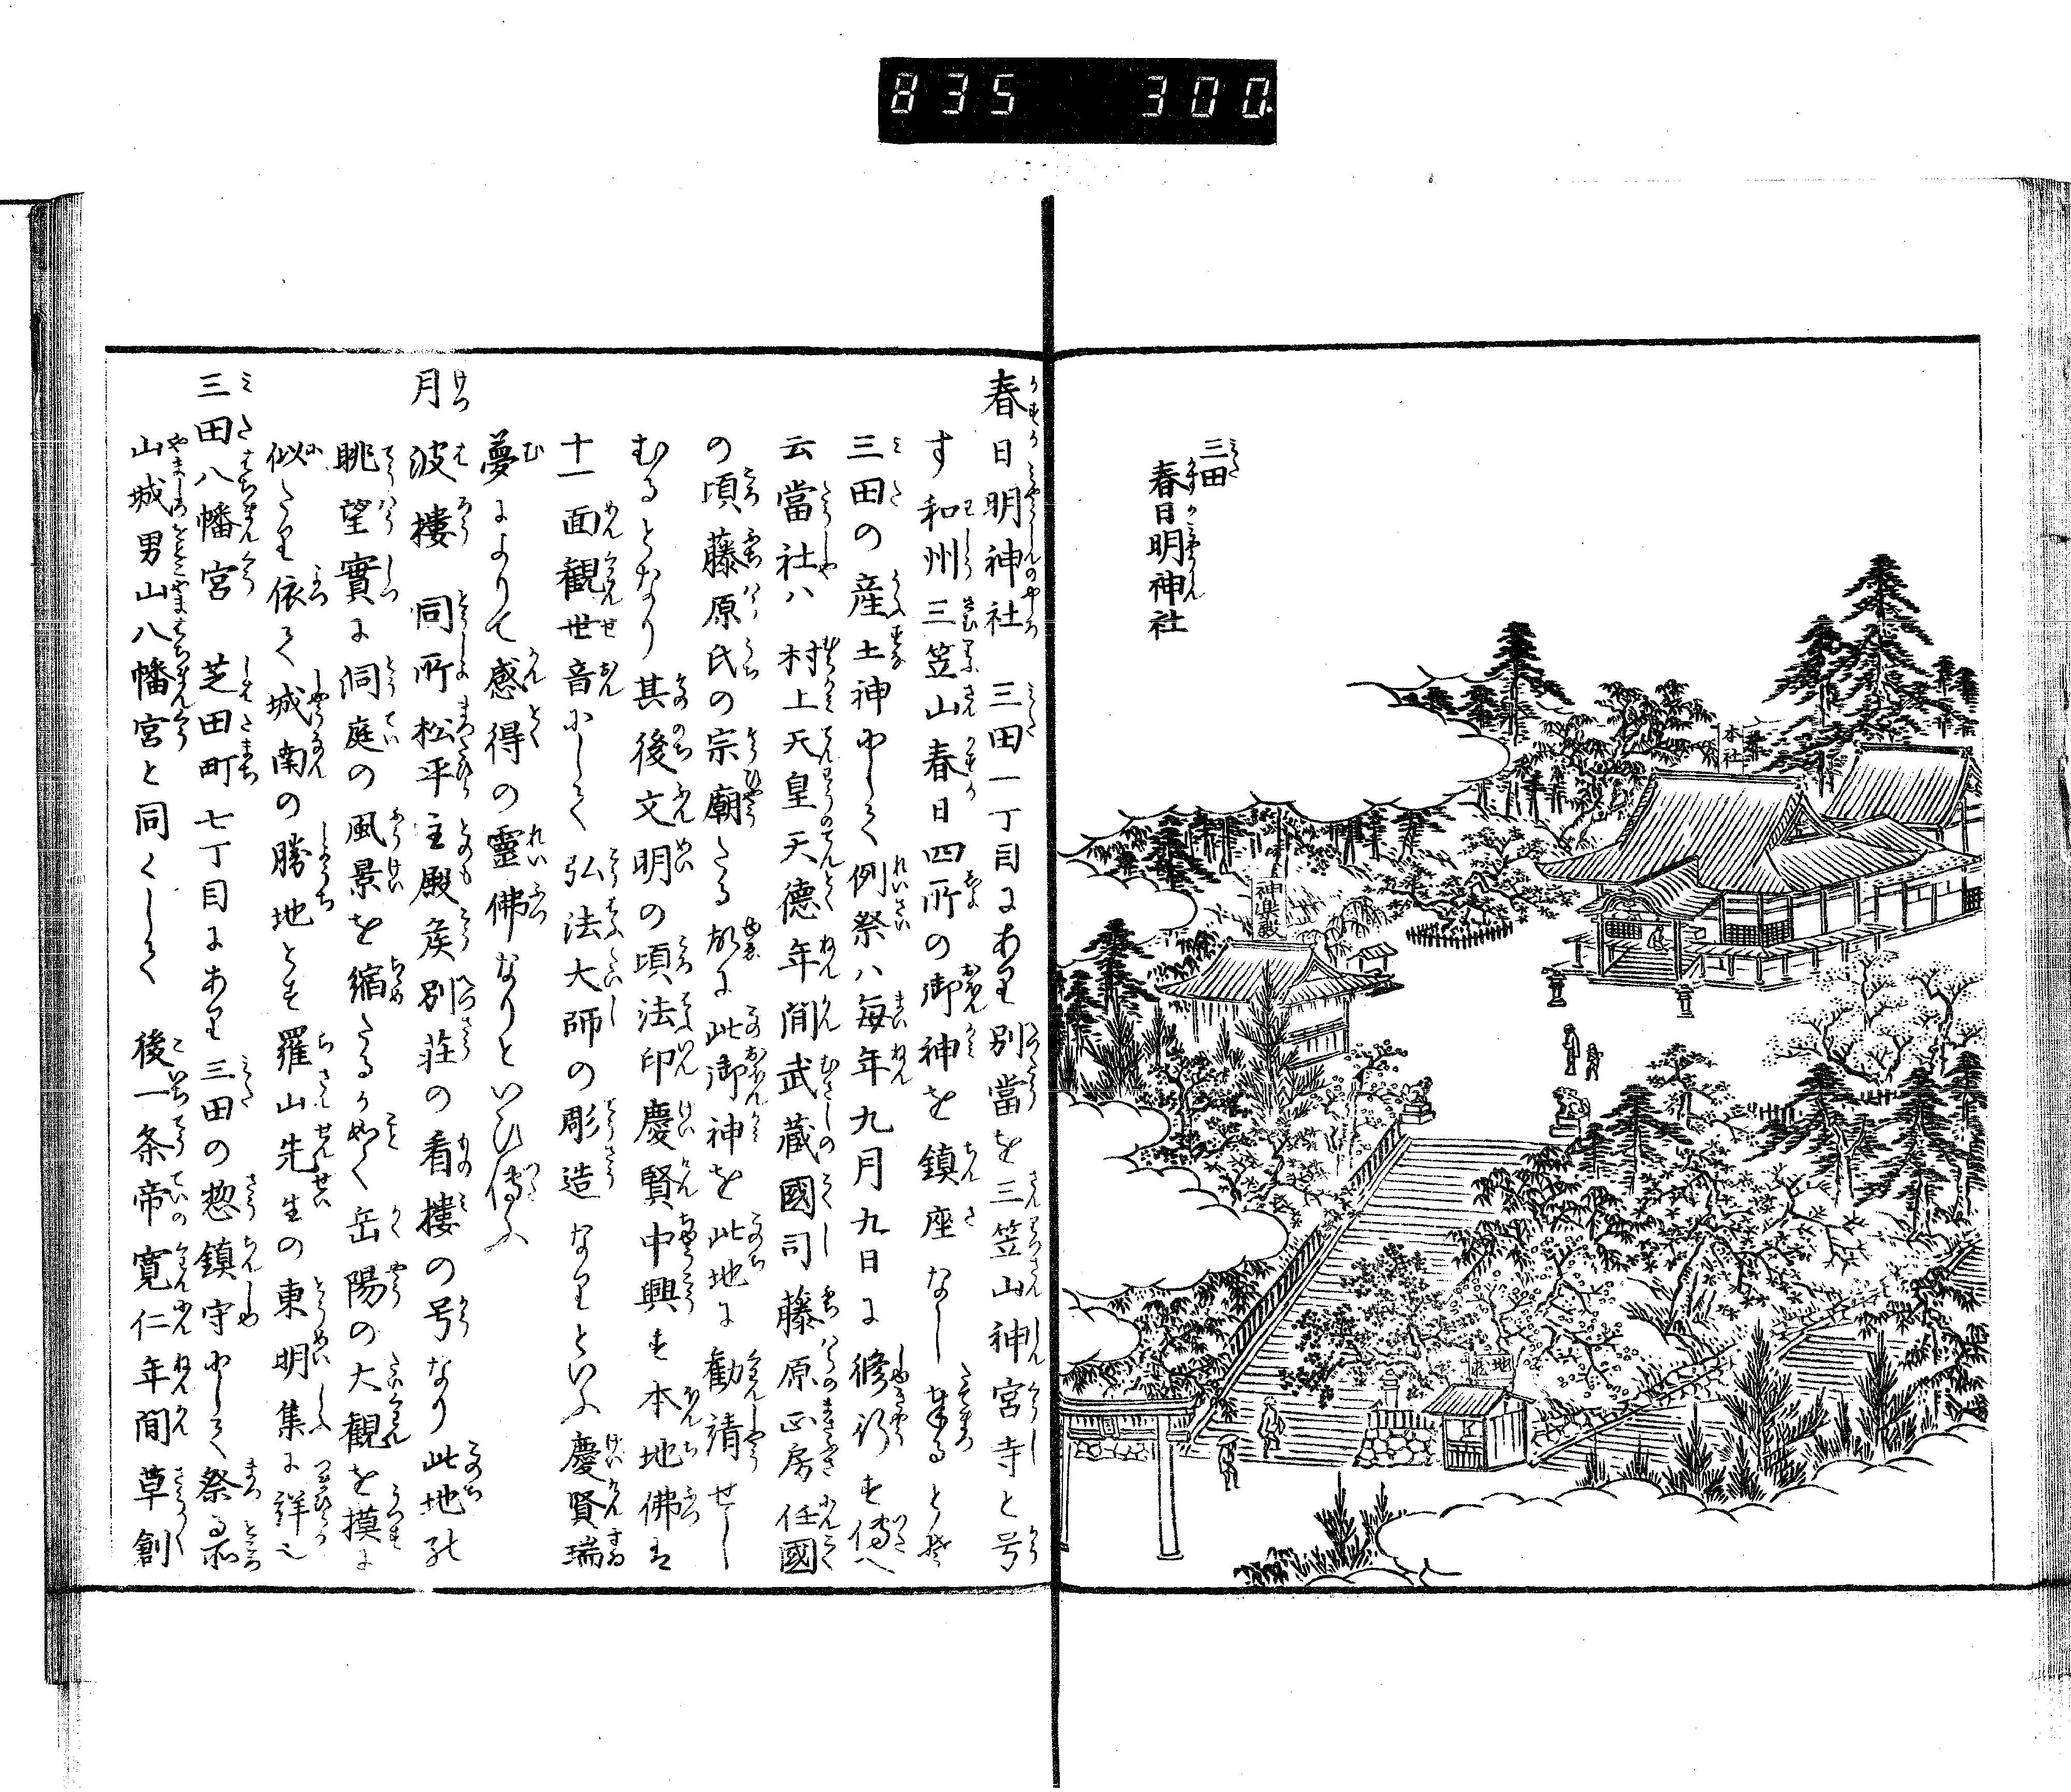 835 300
三田
春日明神社
本社
神楽殿
地蔵
春日明神社 三田一丁目にあり別當を三笠山神宮寺と号
す和州三笠山春日四所の御神を鎮座なし奉ると
三田の産土神にして例祭ハ毎年九月九日に修行す傳へ
云當社ハ 村上天皇天德年間武蔵國司藤原正房任國
の頃藤原氏の宗廟たる故に此御神を此地に勧請せし
むるとなり其後文明の頃法印慶賢中興す本地佛は
十一面観世音にして弘法大師の彫造なりといふ慶賢瑞
夢によりて感得の靈佛なりといひ傳ふ
月波樓 同所松平主殿矦別荘の看樓の号なり此地の
眺望實に洞庭の風景を縮たるか如く岳陽の大観を摸に
似たり依て城南の勝地とす羅山先生の東明集に詳也
三田八幡宮 芝田町七丁目にあり三田の惣鎮守にして祭る所
山城男山八幡宮と同くして 後一条帝寛仁年間草創